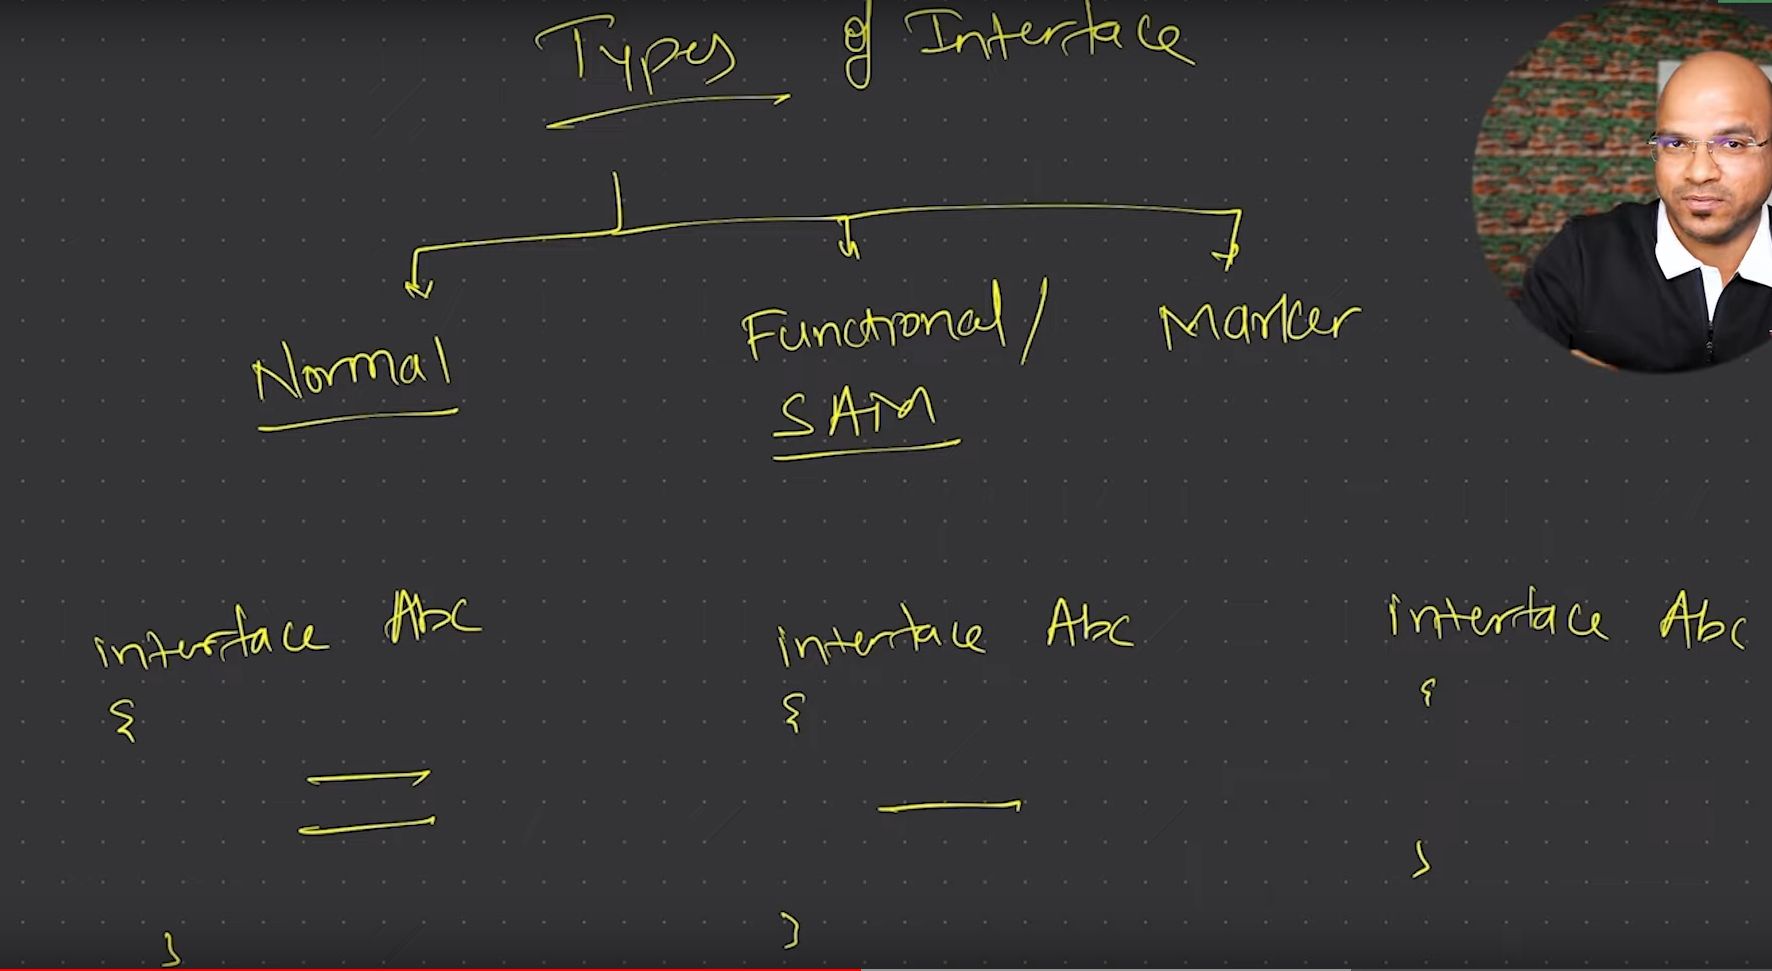 Types of Interface
Normal
Functional/
SAM
Marker
interface Abc
{
}
interface Abc
{
}
interface Abc
{
}